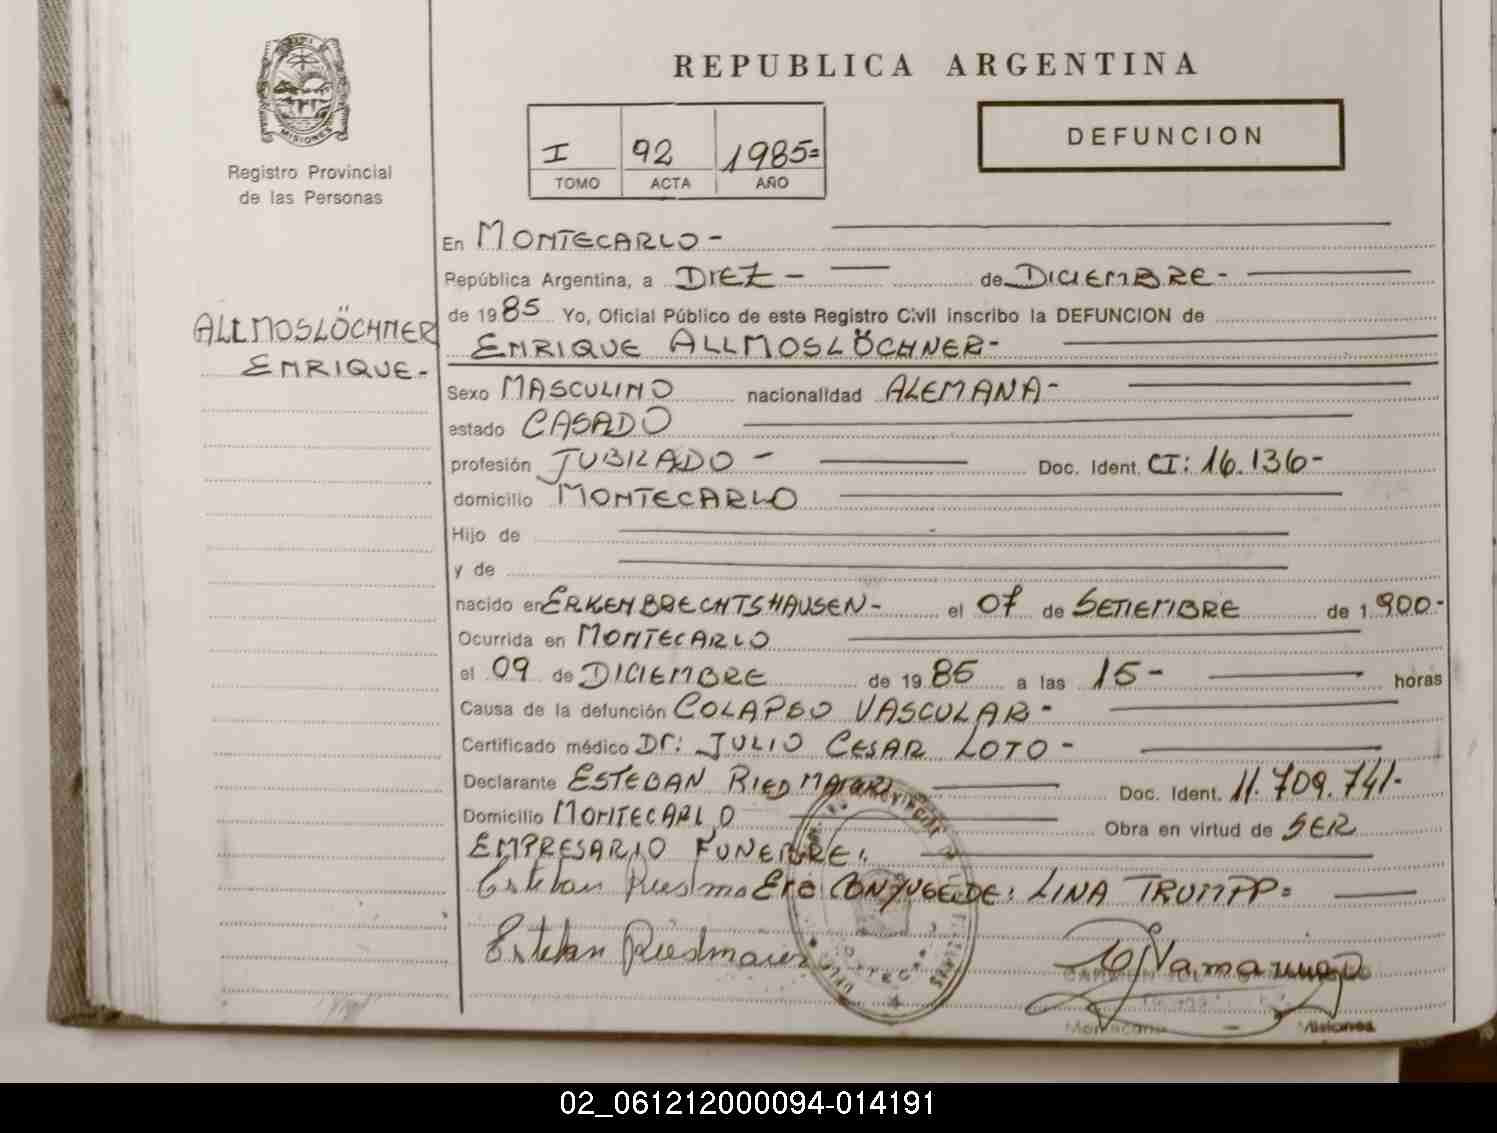 REPUBLICA ARGENTINA
MISIONES
Registro Provincial
de las Personas
I 92 1985=
TOMO ACTA AÑO
DEFUNCION
ALLMOSLÖCHNER
ENRIQUE-
En MONTECARLO-
República Argentina, a DIEZ - de DICIEMBRE-
de 1985 Yo, Oficial Público de este Registro Civil inscribo la DEFUNCION de
ENRIQUE ALLMOSLÖCHNER-
Sexo MASCULINO nacionalidad ALEMANA-
estado CASADO
profesión JUBILADO - Doc. Ident. CI: 16.136-
domicilio MONTECARLO
Hijo de
y de
nacido en ERKENBRECHTSHAUSEN- el 07 de SETIEMBRE de 1.900-
Ocurrida en MONTECARLO
el 09 de DICIEMBRE de 1985 a las 15- horas
Causa de la defunción COLAPSO VASCULAR-
Certificado médico Dr: JULIO CESAR LOTO-
Declarante ESTEBAN RIEDMAIER Doc. Ident. 11.709.741-
Domicilio MONTECARLO Obra en virtud de SER
EMPRESARIO FUNEBRE.
Esteban Riedma Era CONYUGE DE: LINA TRUMPP=
Esteban Riedmaier
Misiones
02_061212000094-014191